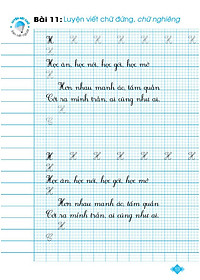 Bài 11: Luyện viết chữ đứng, chữ nghiêng
H H H H H H H
H
Học ăn, học nói, học gói, học mở
Hơn nhau manh áo, tấm quần
Cởi ra mình trần, ai cũng như ai.
H
C
H H H H H H H
H
Học ăn, học nói, học gói, học mở
Hơn nhau manh áo, tấm quần
Cởi ra mình trần, ai cũng như ai.
H
C